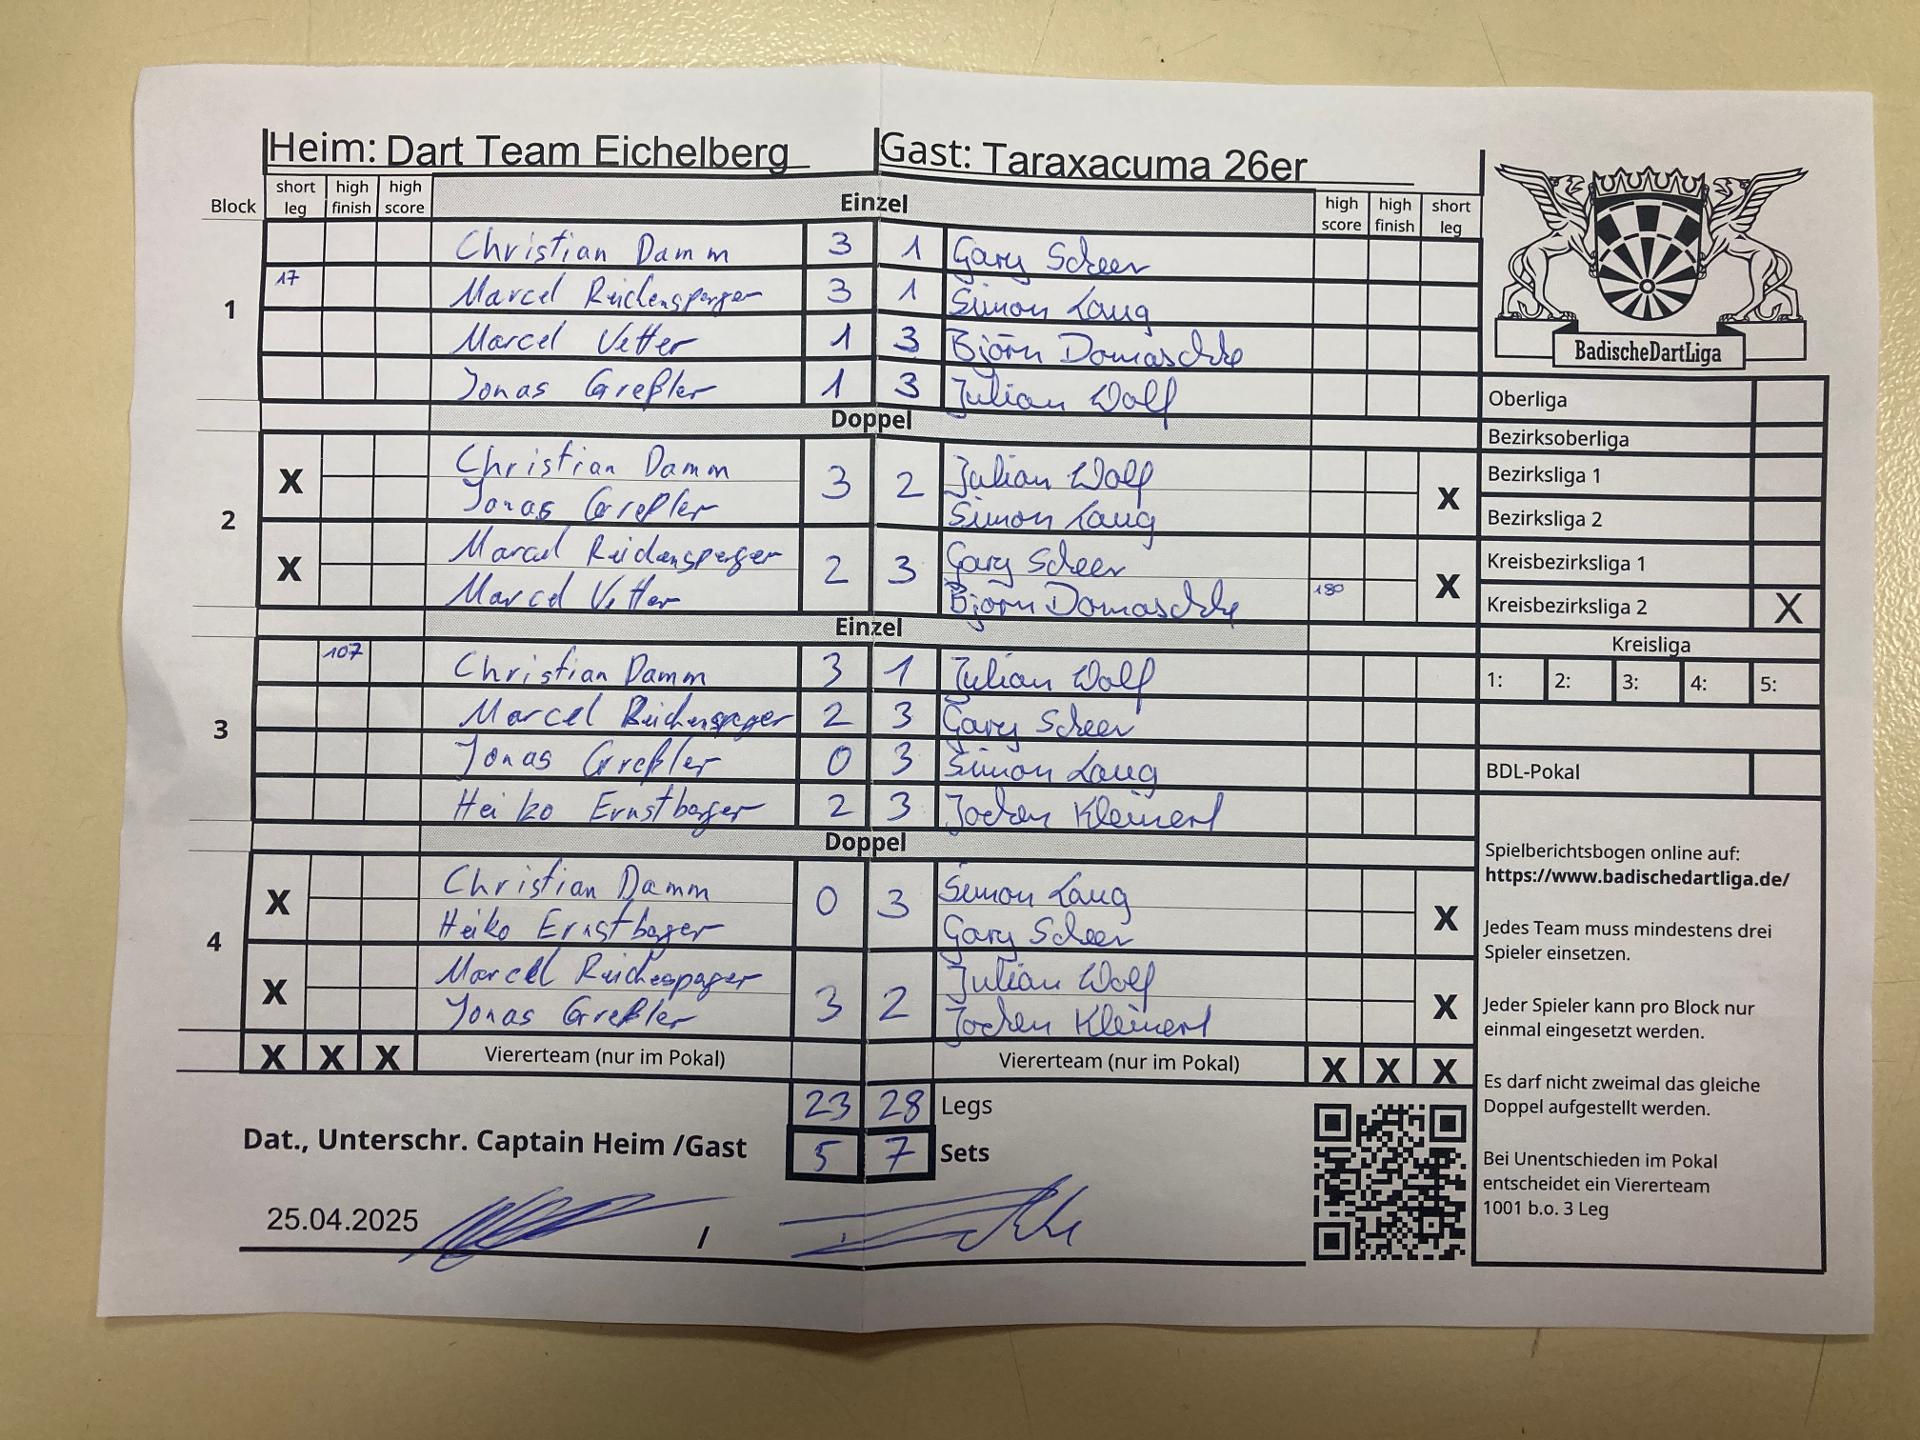 Heim: Dart Team Eichelberg Gast: Taraxacuma 26er
Block short leg high finish high score Einzel high score high finish short leg
1
Christian Damm 3 1 Gary Scheer
17 Marcel Reichensperger 3 1 Simon Laug
Marcel Vetter 1 3 Björn Domaschke
Jonas Greßler 1 3 Julian Wolf
Doppel
2
X Christian Damm 3 2 Julian Wolf X
Jonas Greßler Simon Laug
X Marcel Reichensperger 2 3 Gary Scheer X
Marcel Vetter Björn Domaschke 180
Einzel
3
107 Christian Damm 3 1 Julian Wolf
Marcel Reichensperger 2 3 Gary Scheer
Jonas Greßler 0 3 Simon Laug
Heiko Ernstberger 2 3 Jochen Kleinert
Doppel
4
X Christian Damm 0 3 Simon Laug X
Heiko Ernstberger Gary Scheer
X Marcel Reichensperger 3 2 Julian Wolf X
Jonas Greßler Jochen Kleinert
X X X Viererteam (nur im Pokal) Viererteam (nur im Pokal) X X X
23 28 Legs
Dat., Unterschr. Captain Heim /Gast 5 7 Sets
25.04.2025 /
BadischeDartLiga
Oberliga
Bezirksoberliga
Bezirksliga 1
Bezirksliga 2
Kreisbezirksliga 1
Kreisbezirksliga 2 X
Kreisliga
1: 2: 3: 4: 5:
BDL-Pokal
Spielberichtsbogen online auf:
https://www.badischedartliga.de/
Jedes Team muss mindestens drei
Spieler einsetzen.
Jeder Spieler kann pro Block nur
einmal eingesetzt werden.
Es darf nicht zweimal das gleiche
Doppel aufgestellt werden.
Bei Unentschieden im Pokal
entscheidet ein Viererteam
1001 b.o. 3 Leg